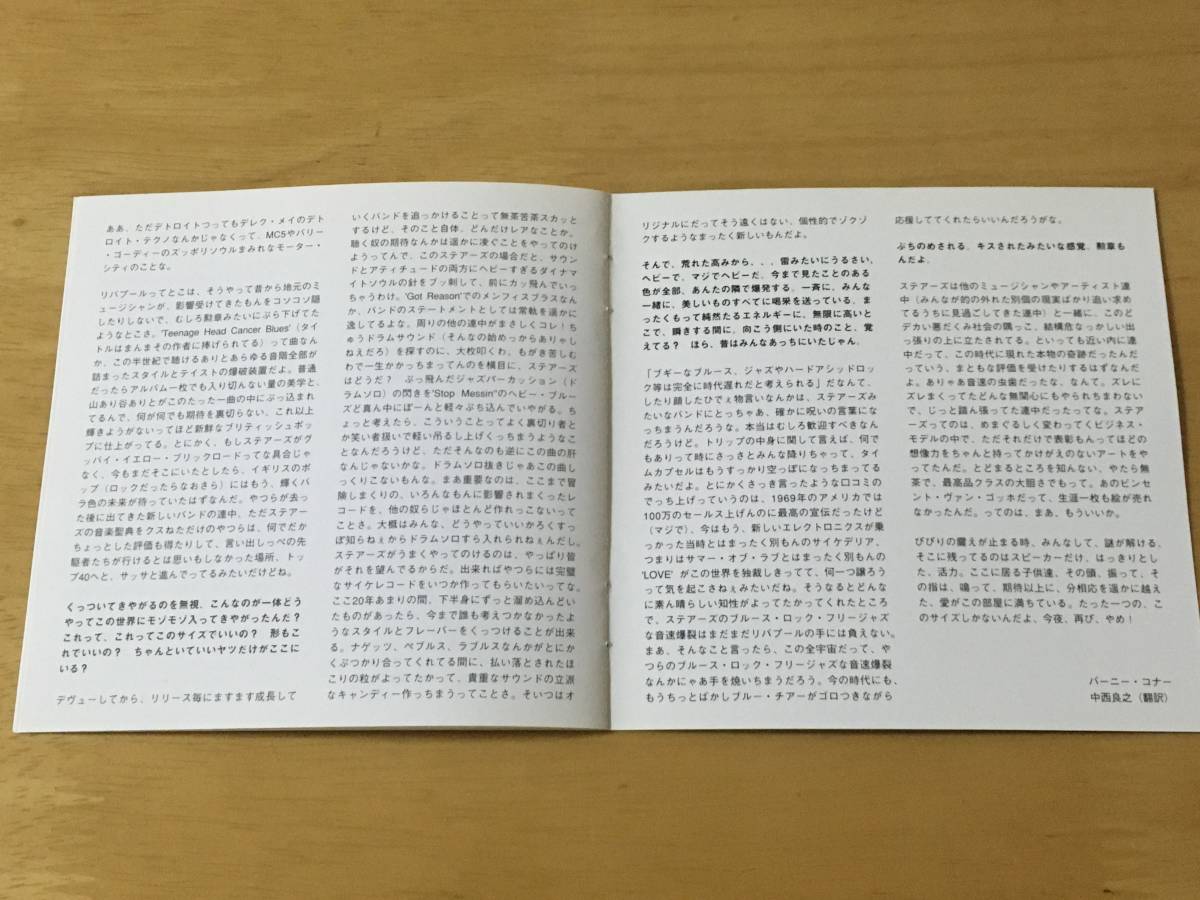 ああ、ただデトロイトつってもデレク・メイのデト
ロイト・テクノなんかじゃなくって、MC5やバリー
・ゴーディーのズッポリソウルまみれなモーター・
シティのことな。
リバプールってとこは、そうやって昔から地元のミ
ュージシャンが、影響受けてきたもんをコソコソ隠
したりしないで、むしろ勲章みたいにぶら下げてた
ようなとこさ。'Teenage Head Cancer Blues'（タイ
トルはまんまその作者に捧げられてる）って曲なん
か、この半世紀で聴けるありとあらゆる音階全部が
詰まったスタイルとテイストの爆破装置だよ。普通
だったらアルバム一枚でも入り切んない量の美学と、
山あり谷ありとがこのたった一曲の中にぶっ込まれ
てるんで、何が何でも期待を裏切らない、これ以上
輝きようがないってほど新鮮なブリティッシュポッ
プに仕上がってる。とにかく、もしステアーズがグ
ッバイ・イエロー・ブリックロードってな具合じゃ
なく、今もまだそこにいたとしたら、イギリスのポ
ップ（ロックだったらなおさら）にはもう、輝くバ
ラ色の未来が待っていたはずなんだ。やつらが去っ
た後に出てきた新しいバンドの連中、ただステアー
ズの音楽聖典をクスねただけのやつらは、何でだか
ちょっとした評価も得たりして、言い出しっぺの先
駆者たちが行けるとは思いもしなかった場所、トッ
プ40へと、サッサと進んでってるみたいだけどね。
くっついてきやがるのを無視、こんなのが一体どう
やってこの世界にモソモソ入ってきやがったんだ？
これって、これってこのサイズでいいの？　形もこ
れでいいの？　ちゃんといていいヤツだけがここに
いる？
デヴューしてから、リリース毎にますます成長して
いくバンドを追っかけることって無茶苦茶スカッと
するけど、そのこと自体、どんだけレアなことか。
聴く奴の期待なんかは遥かに凌ぐことをやってのけ
ようってんで、このステアーズの場合だと、サウン
ドとアティチュードの両方にヘビーすぎるダイナマ
イトソウルの針をブッ刺して、前にカッ飛んでいっ
ちゃうわけ。'Got Reason'でのメンフィスブラスなん
か、バンドのステートメントとしては常軌を遥かに
逸してるよな。周りの他の連中がまさしくコレ！ち
ゅうドラムサウンド（そんなの始めっからありゃし
ねえだろ）を探すのに、大枚叩くわ、もがき苦しむ
わで一生かかっちまってんのを横目に、ステアーズ
はどうだ？　ぶっ飛んだジャズパーカッション（ド
ラムソロ）の閃きを"Stop Messin'"のヘビー・ブルー
ズど真ん中にぽーんと軽々ぶち込んでいやがる。ち
ょっと考えたら、こういうことってよく裏切り者と
か笑い者扱いで軽い吊るし上げくっちまうようなこ
となんだろうけど、ただそんなのも逆にこの曲の肝
なんじゃないかな。ドラムソロ抜きじゃあこの曲し
っくりこないもんな。まあ重要なのは、ここまで冒
険しまくりの、いろんなもんに影響されまくったレ
コードを、他の奴らじゃほとんど作れっこないって
ことさ。大概はみんな、どうやっていいかろくすっ
ぽ知らねぇからドラムソロすら入れられねぇんだし。
ステアーズがうまくやってのけるのは、やっぱり皆
がそれを望んでるからだ。出来ればやつらには完璧
なサイケレコードをいつか作ってもらいたいってな。
ここ20年あまりの間、下半身にずっと溜め込んどい
たものがあったら、今まで誰も考えつかなかったよ
うなスタイルとフレーバーをくっつけることが出来
る。ナゲッツ、ペブルス、ラブルスなんかがとにか
くぶつかり合ってくれてる間に、払い落とされたほ
こりの粒がよってたかって、貴重なサウンドの立派
なキャンディー作っちまうってことさ。そいつはオ
リジナルにだってそう遠くはない、個性的でゾクゾ
クするようなまったく新しいもんだよ。
そんで、荒れた高みから、、、雷みたいにうるさい、
ヘビーで、マジでヘビーだ、今まで見たことのある
色が全部、あんたの隣で爆発する。一斉に、みんな
一緒に、美しいものすべてに喝采を送っている、ま
ったくもって純然たるエネルギーに、無限に高いと
こで、瞬きする間に、向こう側にいた時のこと、覚
えてる？　ほら、昔はみんなあっちにいたじゃん。
「ブギーなブルース、ジャズやハードアシッドロッ
ク等は完全に時代遅れだと考えられる」だなんて、
したり顔したひでぇ物言いなんかは、ステアーズみ
たいなバンドにとっちゃあ、確かに呪いの言葉にな
っちまうんだろうな。本当はむしろ歓迎すべきなん
だろうけど。トリップの中身に関して言えば、何で
もありって時にさっさとみんな降りちゃって、タイ
ムカプセルはもうすっかり空っぽになっちまってる
みたいだよ。とにかくさっき言ったような口コミの
でっち上げっていうのは、1969年のアメリカでは
100万のセールス上げんのに最高の宣伝だったけど
（マジで）、今はもう、新しいエレクトロニクスが乗
っかった当時とはまったく別もんのサイケデリア、
つまりはサマー・オブ・ラブとはまったく別もんの
'LOVE' がこの世界を独裁しきってて、何一つ譲ろう
って気を起こさねぇみたいだね。そうなるとどんな
に素ん晴らしい知性がよってたかってくれたところ
で、ステアーズのブルース・ロック・フリージャズ
な音速爆裂はまだまだリバプールの手には負えない。
まあ、そんなこと言ったら、この全宇宙だって、や
つらのブルース・ロック・フリージャズな音速爆裂
なんかにゃあ手を焼いちまうだろう。今の時代にも、
もうちっとばかしブルー・チアーがゴロつきながら
応援しててくれたらいいんだろうがな。
ぶちのめされる。キスされたみたいな感覚。勲章も
んだよ。
ステアーズは他のミュージシャンやアーティスト連
中（みんなが的の外れた別個の現実ばかり追い求め
てるうちに見過ごしてきた連中）と一緒に、このど
デカい悪だくみ社会の隅っこ、結構危なっかしい出
っ張りの上に立たされてる。といっても近い内に連
中だって、この時代に現れた本物の奇跡だったんだ
っていう、まともな評価を受けたりするはずなんだ
よ。ありゃあ音速の虫歯だったな、なんて。ズレに
ズレまくってたどんな無関心にもやられちまわない
で、じっと踏ん張ってた連中だったってな。ステア
ーズってのは、めまぐるしく変わってくビジネス・
モデルの中で、ただそれだけで表彰もんってほどの
想像力をちゃんと持ってかけがえのないアートをや
ってたんだ。とどまるところを知らない、やたら無
茶で、最高品クラスの大胆さでもって。あのビンセ
ント・ヴァン・ゴッホだって、生涯一枚も絵が売れ
なかったんだ。ってのは、まあ、もういいか。
びびりの震えが止まる時、みんなして、謎が解ける、
そこに残ってるのはスピーカーだけ、はっきりとし
た、活力。ここに居る子供達、その頭、振って、そ
の指は、鳴って、期待以上に、分相応を遥かに越え
た、愛がこの部屋に満ちている。たった一つの、こ
のサイズしかないんだよ、今夜、再び、やめ！
バーニー・コナー
中西良之（翻訳）